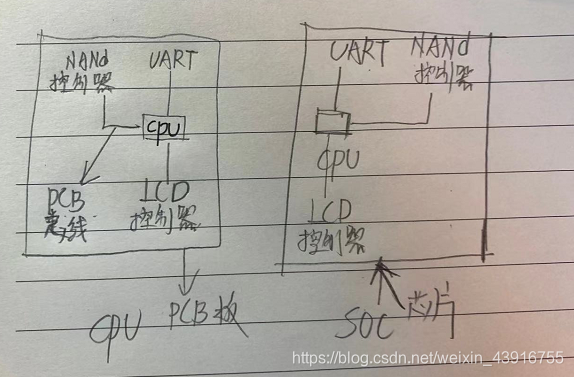 NANd
控制器
UART
CPU
PCB
LCD
控制器
PCB板
CPU
UART
NANd
控制器
CPU
LCD
控制器
SOC 芯片
https://blog.csdn.net/weixin_43916755